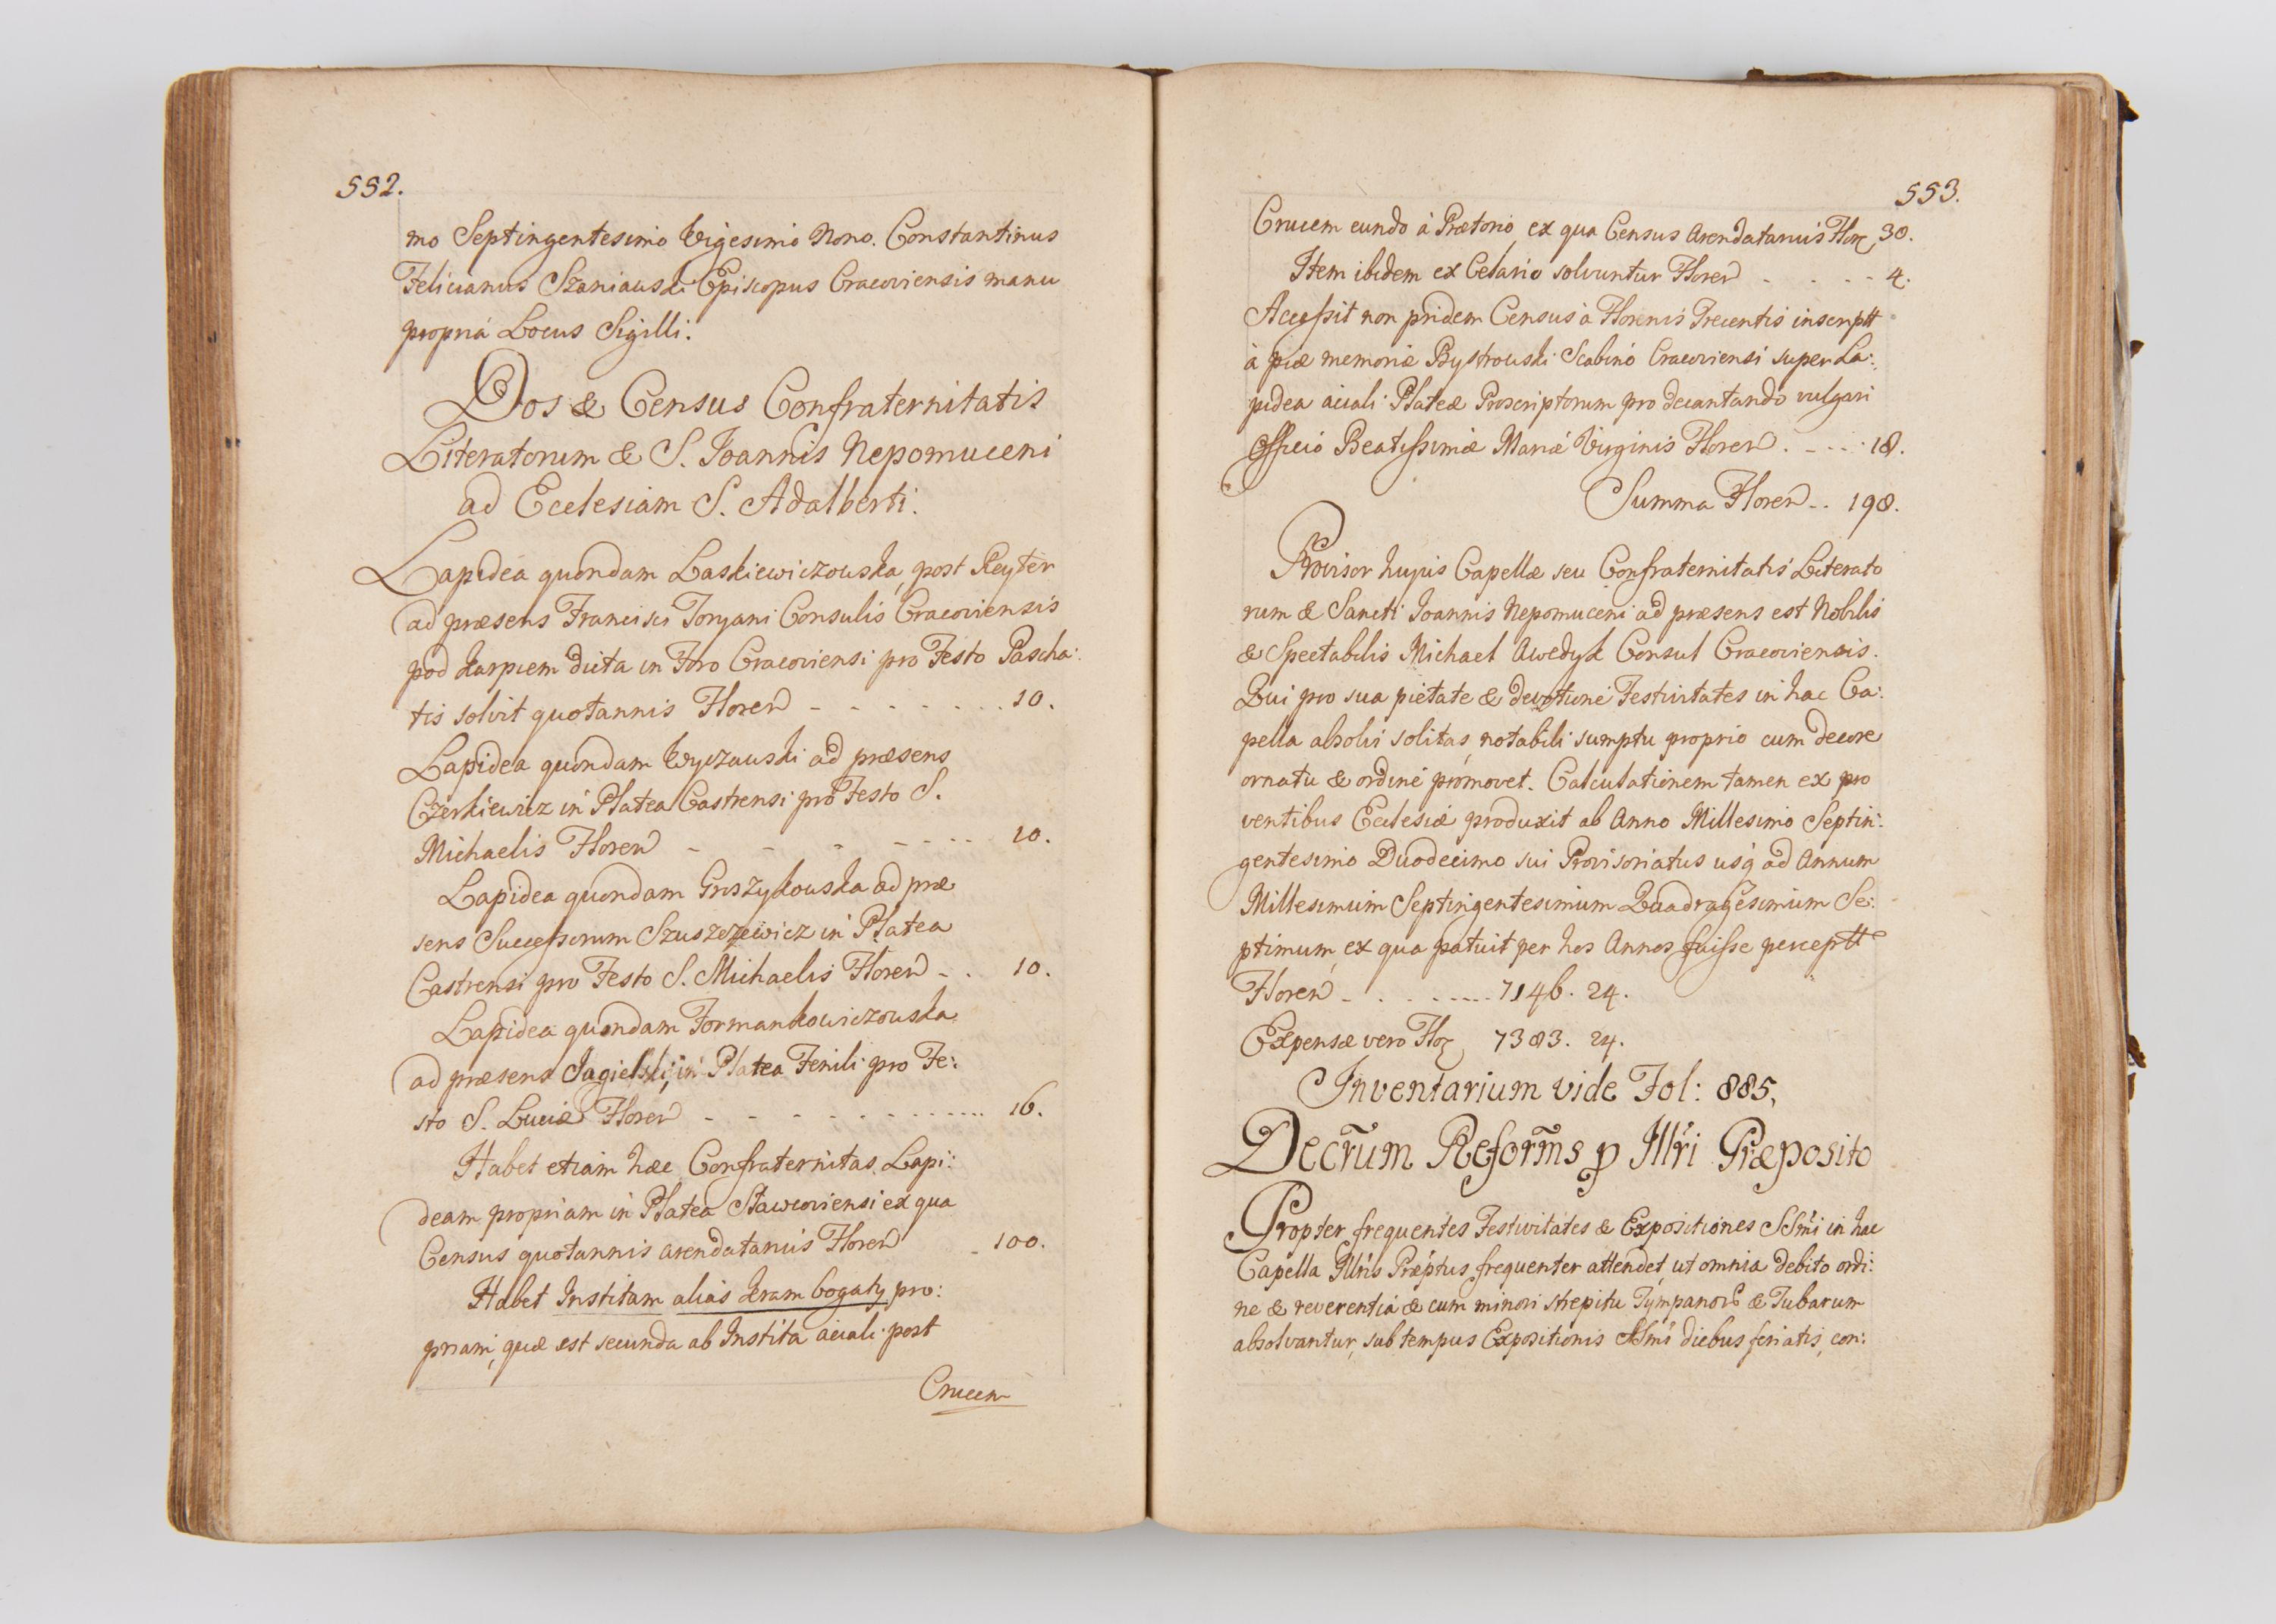 552.
mo Septingentesimo Vigesimo Nono. Constantinus
Felicianus Szaniawski Episcopus Cracoviensis manu
propriá Locus Sigilli.
Dos & Census Confraternitatis
Literatorum & S. Ioannis Nepomuceni
ad Ecclesiam S. Adalberti.
Lapidea quondam Laskiewiczowska, post Reyter
ad præsens Francisci Toryani Consulis Cracoviensis
pod Karpiem dicta in Foro Cracoviensi pro Festo Pascha:
tis solvit quotannis Floren - - - - - - - 10.
Lapidea quondam Wyczawski ad præsens
Czerkiewicz in Platea Castrensi pro Festo S.
Michaelis Floren - - - - - - - 10.
Lapidea quondam Griszykowska ad præ
sens Successorum Szuszczewicz in Platea
Castrensi pro Festo S. Michaelis Floren - . 10.
Lapidea quondam Formankowiczowska
ad præsens Jagielski, in Platea Fenili pro Fe:
sto S. Luciæ Floren - - - - - - - - 16.
Habet etiam hæc Confraternitas Lapi:
deam propriam in Platea Slawcoviensi ex qua
Census quotannis arendatarius Floren - 100.
Habet Institam alias Kram bogaty pro:
priam, quæ est secunda ab Instita aciali post
Crucem
553.
Crucem eundo á Prætorio, ex qua Census Arendatarius Flor 30.
Item ibidem ex Celario solvuntur Floren - . . - - 4.
Accessit non pridem Census á Florenis Trecentis inscriptt
á piæ memoriæ Bystrowski Scabino Cracoviensi super La:
pidea aciali Plateæ Proscriptorum pro decantando vulgari
Officio Beatissimæ Mariæ Virginis Floren . - - - - 18.
Summa Floren - . 198.
Provisor hujus Capellæ seu Confraternitatis Literato
rum & Sancti Ioannis Nepomuceni ad præsens est Nobilis
& Spectabilis Michael Awedyk Consul Cracoviensis.
Qui pro sua pietate & devotione Festivitates in hac Ca:
pella absolvi solitas, notabili sumptu proprio cum decore
ornatu & ordine promovet. Calculationem tamen ex pro
ventibus Ecclesiæ produxit ab Anno Millesimo Septin:
gentesimo Duodecimo sui Provisoriatus usq ad Annum
Millesimum Septingentesimum Quadragesimum Se:
ptimum, ex qua patuit per hos Annos fuisse perceptt
Floren - . . - - - - - 7146. 24.
Expensæ vero Flor 7383. 24.
Inventarium vide Fol: 885,
Decrūm Reform̃s p Illri Præposito
Propter frequentes Festivitates & Expositiones SSmi in hac
Capella Illris Præptus frequenter attendet, ut omnia debito ordi:
ne & reverentiá & cum minori strepitu Tympanor & Tubarum
absolvantur, sub tempus Expositionis SSmi diebus feriatis, con: